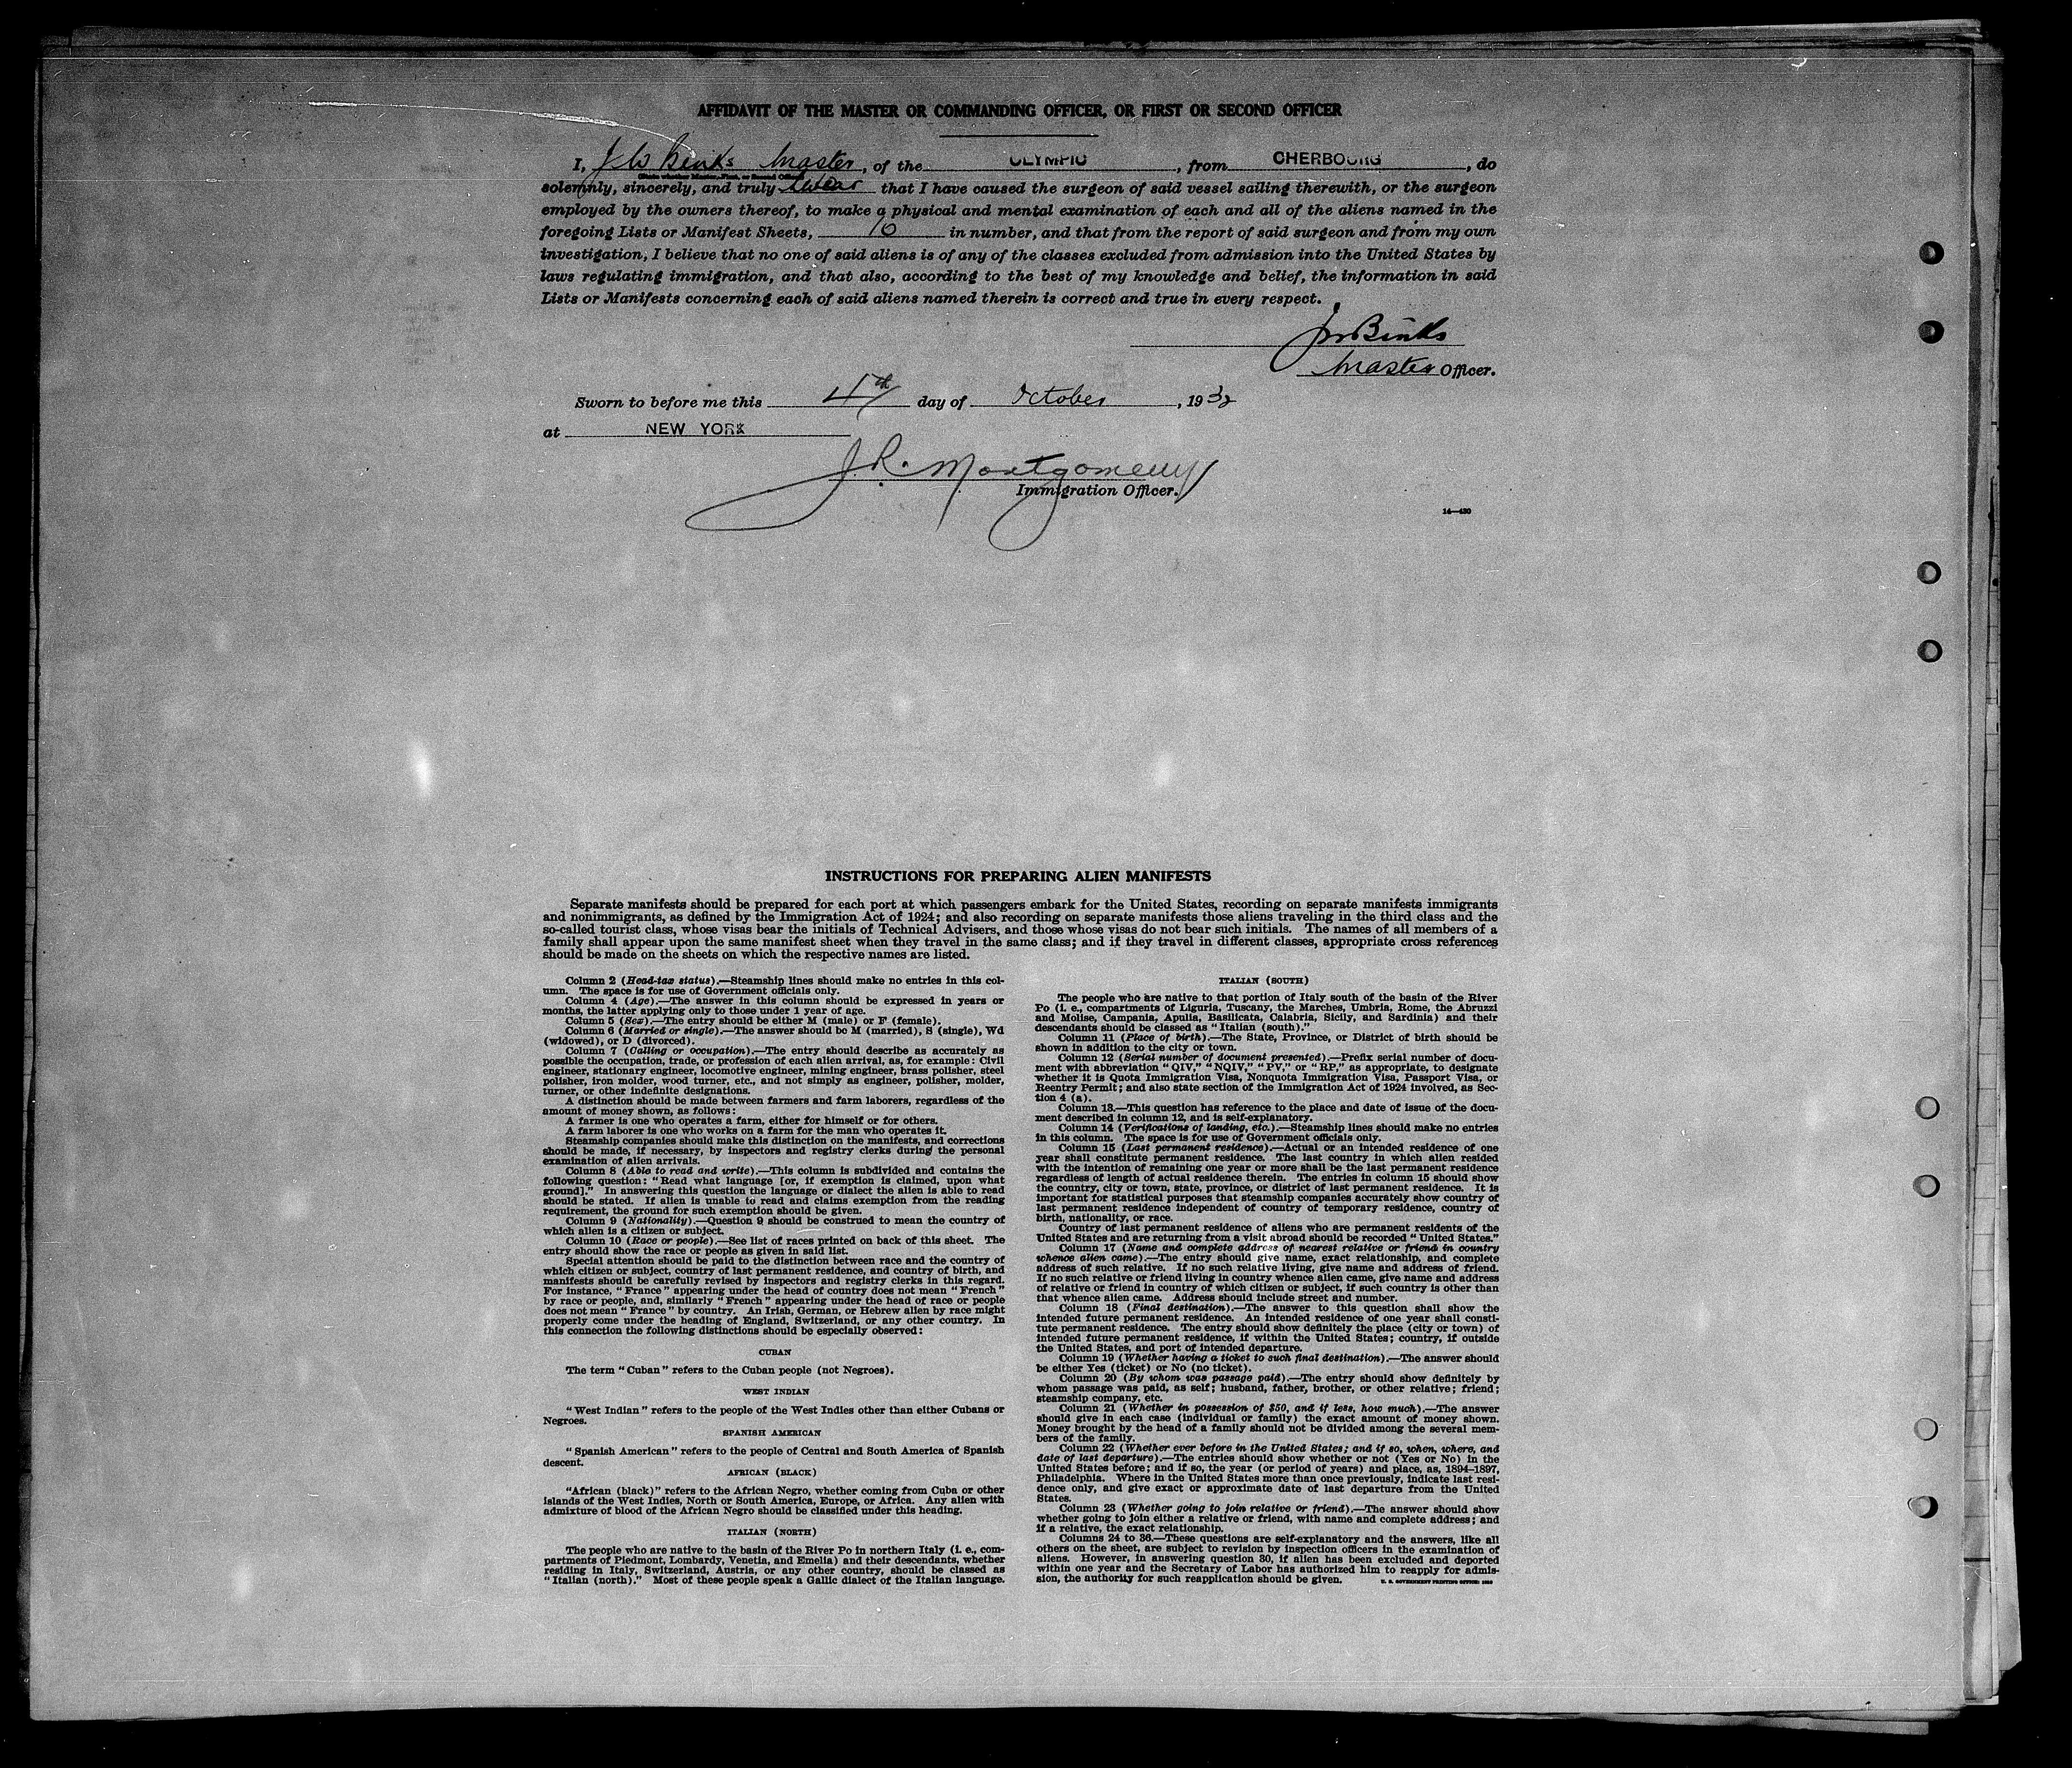 AFFIDAVIT OF THE MASTER OR COMMANDING OFFICER, OR FIRST OR SECOND OFFICER
I, J W Binks Master, of the OLYMPIC, from CHERBOURG, do
(State whether Master, First, or Second Officer)
solemnly, sincerely, and truly swear that I have caused the surgeon of said vessel sailing therewith, or the surgeon
employed by the owners thereof, to make a physical and mental examination of each and all of the aliens named in the
foregoing Lists or Manifest Sheets, 10 in number, and that from the report of said surgeon and from my own
investigation, I believe that no one of said aliens is of any of the classes excluded from admission into the United States by
laws regulating immigration, and that also, according to the best of my knowledge and belief, the information in said
Lists or Manifests concerning each of said aliens named therein is correct and true in every respect.
JW Binks
Master Officer.
Sworn to before me this 4th day of October, 1932
at NEW YORK
J. R. Montgomery
Immigration Officer.
14—430
INSTRUCTIONS FOR PREPARING ALIEN MANIFESTS
Separate manifests should be prepared for each port at which passengers embark for the United States, recording on separate manifests immigrants
and nonimmigrants, as defined by the Immigration Act of 1924; and also recording on separate manifests those aliens traveling in the third class and the
so-called tourist class, whose visas bear the initials of Technical Advisers, and those whose visas do not bear such initials. The names of all members of a
family shall appear upon the same manifest sheet when they travel in the same class; and if they travel in different classes, appropriate cross references
should be made on the sheets on which the respective names are listed.
Column 2 (Head-tax status).—Steamship lines should make no entries in this col-
umn. The space is for use of Government officials only.
Column 4 (Age).—The answer in this column should be expressed in years or
months, the latter applying only to those under 1 year of age.
Column 5 (Sex).—The entry should be either M (male) or F (female).
Column 6 (Married or single).—The answer should be M (married), S (single), Wd
(widowed), or D (divorced).
Column 7 (Calling or occupation).—The entry should describe as accurately as
possible the occupation, trade, or profession of each alien arrival, as, for example: Civil
engineer, stationary engineer, locomotive engineer, mining engineer, brass polisher, steel
polisher, iron molder, wood turner, etc., and not simply as engineer, polisher, molder,
turner, or other indefinite designations.
A distinction should be made between farmers and farm laborers, regardless of the
amount of money shown, as follows:
A farmer is one who operates a farm, either for himself or for others.
A farm laborer is one who works on a farm for the man who operates it.
Steamship companies should make this distinction on the manifests, and corrections
should be made, if necessary, by inspectors and registry clerks during the personal
examination of alien arrivals.
Column 8 (Able to read and write).—This column is subdivided and contains the
following question: "Read what language [or, if exemption is claimed, upon what
ground]." In answering this question the language or dialect the alien is able to read
should be stated. If alien is unable to read and claims exemption from the reading
requirement, the ground for such exemption should be given.
Column 9 (Nationality).—Question 9 should be construed to mean the country of
which alien is a citizen or subject.
Column 10 (Race or people).—See list of races printed on back of this sheet. The
entry should show the race or people as given in said list.
Special attention should be paid to the distinction between race and the country of
which citizen or subject, country of last permanent residence, and country of birth, and
manifests should be carefully revised by inspectors and registry clerks in this regard.
For instance, "France" appearing under the head of country does not mean "French"
by race or people, and, similarly "French" appearing under the head of race or people
does not mean "France" by country. An Irish, German, or Hebrew alien by race might
properly come under the heading of England, Switzerland, or any other country. In
this connection the following distinctions should be especially observed:
CUBAN
The term "Cuban" refers to the Cuban people (not Negroes).
WEST INDIAN
"West Indian" refers to the people of the West Indies other than either Cubans or
Negroes.
SPANISH AMERICAN
"Spanish American" refers to the people of Central and South America of Spanish
descent.
AFRICAN (BLACK)
"African (black)" refers to the African Negro, whether coming from Cuba or other
islands of the West Indies, North or South America, Europe, or Africa. Any alien with
admixture of blood of the African Negro should be classified under this heading.
ITALIAN (NORTH)
The people who are native to the basin of the River Po in northern Italy (i. e., com-
partments of Piedmont, Lombardy, Venetia, and Emelia) and their descendants, whether
residing in Italy, Switzerland, Austria, or any other country, should be classed as
"Italian (north)." Most of these people speak a Gallic dialect of the Italian language.
ITALIAN (SOUTH)
The people who are native to that portion of Italy south of the basin of the River
Po (i. e., compartments of Liguria, Tuscany, the Marches, Umbria, Rome, the Abruzzi
and Molise, Campania, Apulia, Basilicata, Calabria, Sicily, and Sardinia) and their
descendants should be classed as "Italian (south)."
Column 11 (Place of birth).—The State, Province, or District of birth should be
shown in addition to the city or town.
Column 12 (Serial number of document presented).—Prefix serial number of docu-
ment with abbreviation "QIV," "NQIV," "PV," or "RP," as appropriate, to designate
whether it is Quota Immigration Visa, Nonquota Immigration Visa, Passport Visa, or
Reentry Permit; and also state section of the Immigration Act of 1924 involved, as Sec-
tion 4 (a).
Column 13.—This question has reference to the place and date of issue of the docu-
ment described in column 12, and is self-explanatory.
Column 14 (Verifications of landing, etc.).—Steamship lines should make no entries
in this column. The space is for use of Government officials only.
Column 15 (Last permanent residence).—Actual or an intended residence of one
year shall constitute permanent residence. The last country in which alien resided
with the intention of remaining one year or more shall be the last permanent residence
regardless of length of actual residence therein. The entries in column 15 should show
the country, city or town, state, province, or district of last permanent residence. It is
important for statistical purposes that steamship companies accurately show country of
last permanent residence independent of country of temporary residence, country of
birth, nationality, or race.
Country of last permanent residence of aliens who are permanent residents of the
United States and are returning from a visit abroad should be recorded "United States."
Column 17 (Name and complete address of nearest relative or friend in country
whence alien came).—The entry should give name, exact relationship, and complete
address of such relative. If no such relative living, give name and address of friend.
If no such relative or friend living in country whence alien came, give name and address
of relative or friend in country of which citizen or subject, if such country is other than
that whence alien came. Address should include street and number.
Column 18 (Final destination).—The answer to this question shall show the
intended future permanent residence. An intended residence of one year shall consti-
tute permanent residence. The entry should show definitely the place (city or town) of
intended future permanent residence, if within the United States; country, if outside
the United States, and port of intended departure.
Column 19 (Whether having a ticket to such final destination).—The answer should
be either Yes (ticket) or No (no ticket).
Column 20 (By whom was passage paid).—The entry should show definitely by
whom passage was paid, as self; husband, father, brother, or other relative; friend;
steamship company, etc.
Column 21 (Whether in possession of $50, and if less, how much).—The answer
should give in each case (individual or family) the exact amount of money shown.
Money brought by the head of a family should not be divided among the several mem-
bers of the family.
Column 22 (Whether ever before in the United States; and if so, when, where, and
date of last departure).—The entries should show whether or not (Yes or No) in the
United States before; and if so, the year (or period of years) and place, as, 1894–1897,
Philadelphia. Where in the United States more than once previously, indicate last resi-
dence only, and give exact or approximate date of last departure from the United
States.
Column 23 (Whether going to join relative or friend).—The answer should show
whether going to join either a relative or friend, with name and complete address; and
if a relative, the exact relationship.
Columns 24 to 36.—These questions are self-explanatory and the answers, like all
others on the sheet, are subject to revision by inspection officers in the examination of
aliens. However, in answering question 30, if alien has been excluded and deported
within one year and the Secretary of Labor has authorized him to reapply for admis-
sion, the authority for such reapplication should be given.
U. S. GOVERNMENT PRINTING OFFICE: